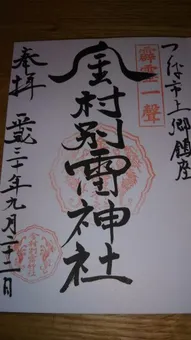 つくば市上郷鎮座
霹靂一聲
金村別雷神社
奉拝
平成三十年九月二十一日